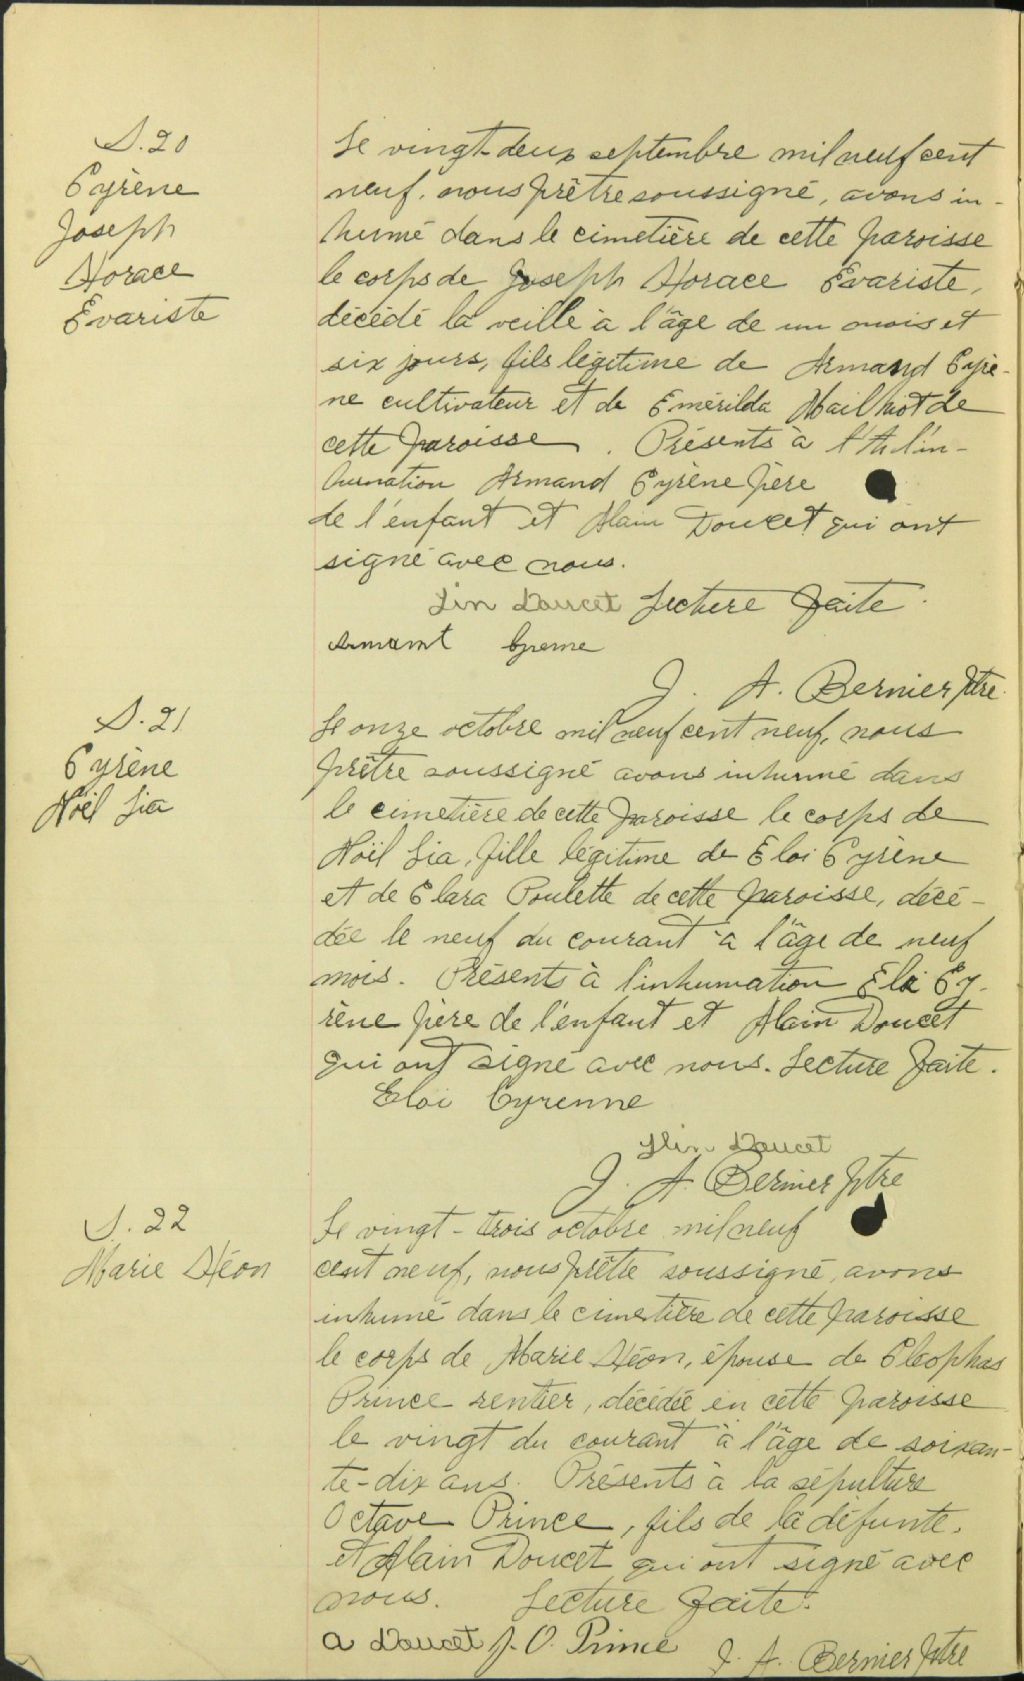 S. 20
Cyrène
Joseph
Horace
Evariste
Le vingt-deux septembre mil neuf cent
neuf, nous prêtre soussigné, avons in-
humé dans le cimetière de cette paroisse
le corps de Joseph Horace Evariste,
décédé la veille à l'âge de un mois et
six jours, fils légitime de Armand Cyrè-
ne cultivateur et de Emérilda Mailhot de
cette paroisse. Présents à l'in-
humation Armand Cyrène père
de l'enfant et Alain Doucet qui ont
signé avec nous.
Doucet Lecture faite.
Armamt Cyrenne
J. A. Bernier Ptre.
S. 21
Cyrène
Noël Lia
Le onze octobre mil neuf cent neuf, nous
prêtre soussigné avons inhumé dans
le cimetière de cette paroisse le corps de
Noël Lia, fille légitime de Eloi Cyrène
et de Clara Poulette de cette paroisse, décé-
dée le neuf du courant à l'âge de neuf
mois. Présents à l'inhumation Eloi Cy-
rène père de l'enfant et Alain Doucet
qui ont signé avec nous. Lecture faite.
Eloi Cyrenne
Doucet
J. A. Bernier Ptre
S. 22
Marie Héon
Le vingt-trois octobre mil neuf
cent neuf, nous prêtre soussigné, avons
inhumé dans le cimetière de cette paroisse
le corps de Marie Héon, épouse de Cléophas
Prince rentier, décédée en cette paroisse
le vingt du courant à l'âge de soixan-
te-dix ans. Présents à la sépulture
Octave Prince, fils de la défunte,
et Alain Doucet qui ont signé avec
nous. Lecture faite.
A Doucet J. O. Prince J. A. Bernier Ptre